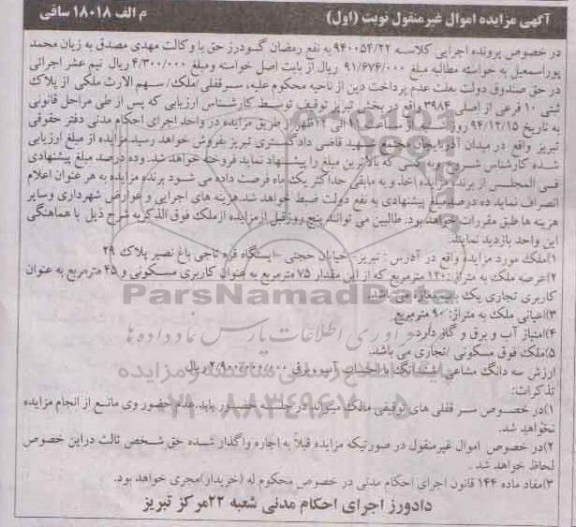 آگهی مزایده اموال غیرمنقول نوبت (اول) م الف ۱۸۰۱۸ ساقی
در خصوص پرونده اجرایی کلاسه ۹۴۰۰۵۴/۲۲ به نفع رمضان گودرز حق با وکالت مهدی مصدق به زیان محمد
پوراسمعیل به خواسته مطالبه مبلغ ۹۱/۶۷۴/۰۰۰ ریال از بابت اصل خواسته ومبلغ ۴/۳۰۰/۰۰۰ ریال نیم عشر اجرائی
در حق صندوق دولت بعلت عدم پرداخت دین از ناحیه محکوم علیه، سرقفلی/ملک/سهم الارث ملکی از پلاک
ثبتی ۱۰ فرعی از اصلی ۳۹۸۴ واقع در بخش تبریز توقیف توسط کارشناس ارزیابی که پس از طی مراحل قانونی
به تاریخ ۹۴/۱۲/۱۵ روز ساعت الی ۱۲ ظهر از طریق مزایده در واحد اجرای احکام مدنی دفتر حقوقی
تبریز واقع در میدان آذربایجان مجتمع شهید قاضی دادگستری تبریز بفروش خواهد رسید مزایده از مبلغ ارزیابی
شده کارشناس شروع و به کسی که بالاترین مبلغ را پیشنهاد نماید فروخته خواهد شد. وده درصد مبلغ پیشنهادی
فی المجلس از برنده مزایده اخذ و به مابقی حداکثر یک ماه فرصت داده می شود برنده مزایده به هر عنوان اعلام
انصراف نماید ده درصد مبلغ پیشنهادی به نفع دولت ضبط خواهد شد. هزینه های اجرایی و عوارض شهرداری وسایر
هزینه ها طبق مقررات خواهد بود. طالبین می توانند پنج روز قبل از مزایده از ملک فوق الذکر به شرح ذیل با هماهنگی
این واحد بازدید نمایند.
۱)ملک مورد مزایده واقع در آدرس : تبریز- خیابان حجتی -ایستگاه قره تاجی باغ نصیر پلاک ۲۹
۲)عرصه ملک به متراژ: ۱۲۰ مترمربع که از این مقدار ۷۵ مترمربع به عنوان کاربری مسکونی و ۴۵ مترمربع به عنوان
کاربری تجاری یک باب مغازه می باشد.
۳)اعیانی ملک به متراژ: ۹۰ مترمربع
۴)امتیاز آب و برق و گاز دارد.
۵)ملک فوق مسکونی /تجاری می باشد.
ارزش سه دانگ مشاعی ششدانگ با احتساب آب و برق ۲/۹۰۰/۰۰۰/۰۰۰ ریال
تذکرات:
۱)در خصوص سر قفلی های توقیفی مالک میتواند در جلسه حضور یابد. عدم حضور وی مانع از انجام مزایده
نخواهد شد.
۲)در خصوص اموال غیرمنقول در صورتیکه مزایده قبلاً به اجاره واگذار شده حق شخص ثالث دراین خصوص
لحاظ خواهد شد .
۳)مفاد ماده ۱۴۴ قانون اجرای احکام مدنی در خصوص محکوم له (خریدار)مجری خواهد بود.
دادورز اجرای احکام مدنی شعبه ۲۲مرکز تبریز
ParsNamadData
فرآوری اطلاعات پارس نماد داده ها
۰۲۱-۸۸۳۴۹۶۷۰-۵